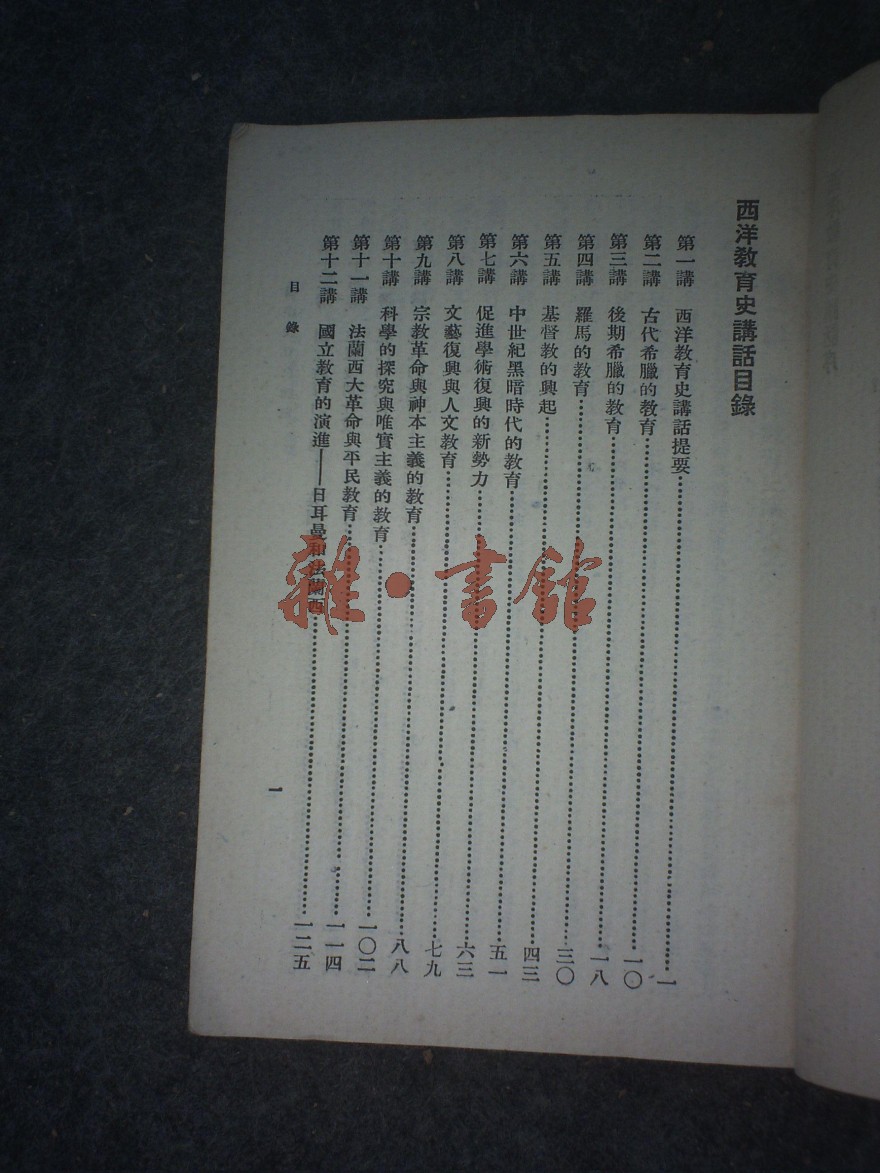 西洋教育史講話目錄
第一講 西洋教育史講話提要…一
第二講 古代希臘的教育…一〇
第三講 後期希臘的教育…一八
第四講 羅馬的教育…三〇
第五講 基督教的興起…四三
第六講 中世紀黑暗時代的教育…五一
第七講 促進學術復興的新勢力…六三
第八講 文藝復興與人文教育…七九
第九講 宗教革命與神本主義的教育…八八
第十講 科學的探究與唯實主義的教育…一〇二
第十一講 法蘭西大革命與平民教育…一一四
第十二講 國立教育的演進——日耳曼和法蘭西…一二五
目錄
一
雜·書館